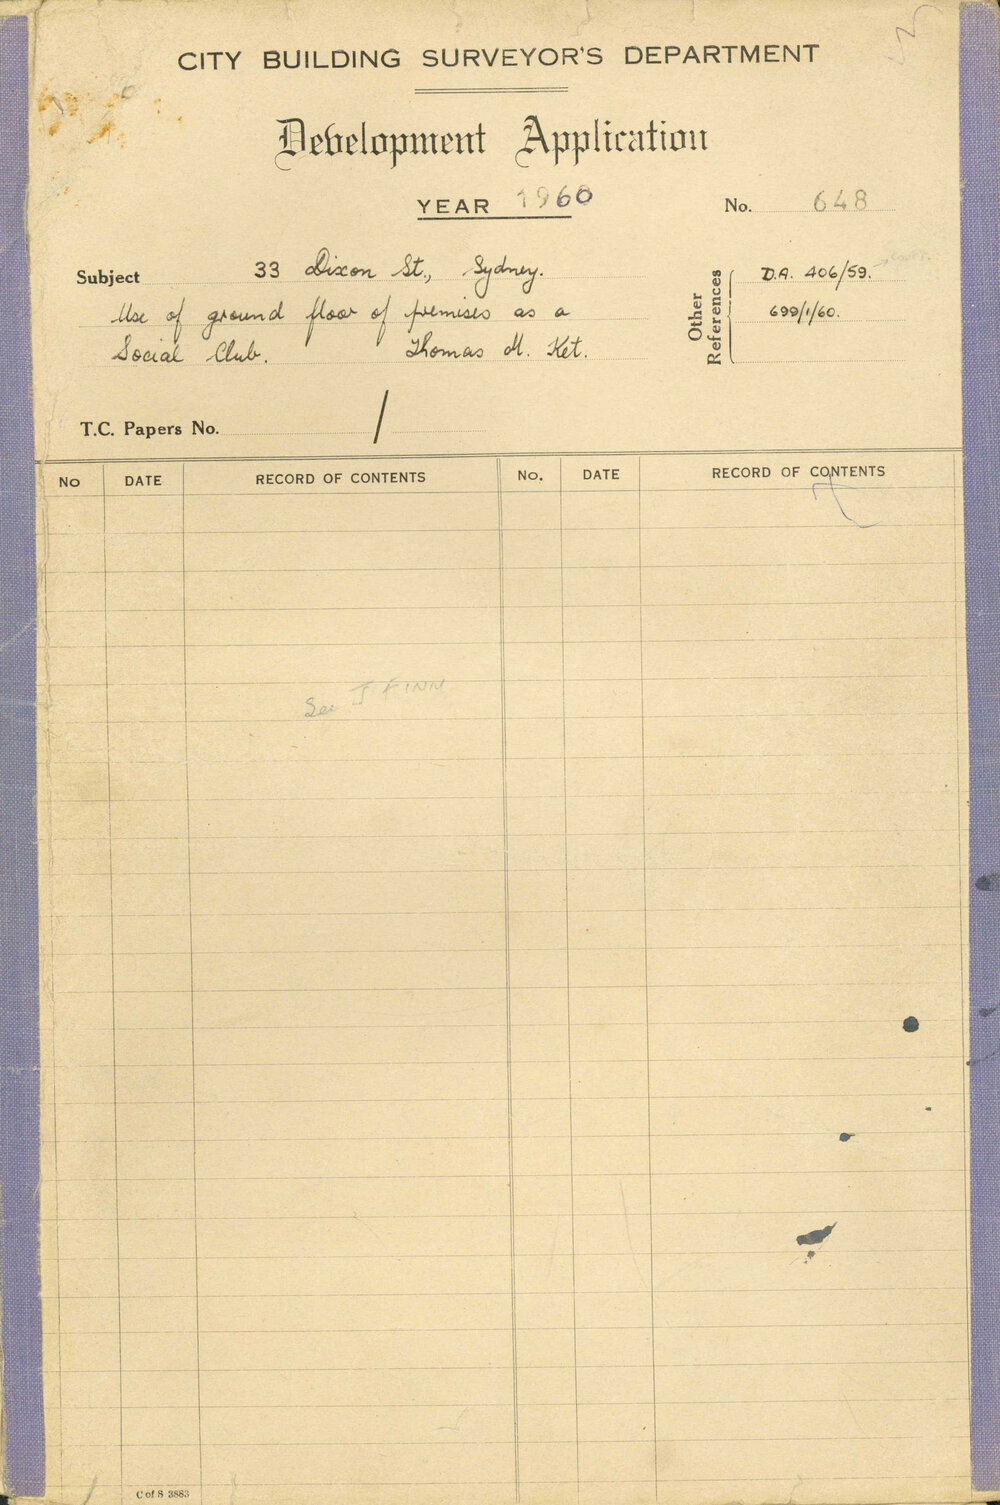 CITY BUILDING SURVEYOR'S DEPARTMENT
Development Application
YEAR 1960
No. 648
Subject 33 Dixon St., Sydney.
Use of ground floor of premises as a
Social Club. Thomas M. Ket.
Other References
D.A. 406/59.
699/1/60.
T.C. Papers No. /
No DATE RECORD OF CONTENTS No. DATE RECORD OF CONTENTS
See J FINN
C of S 3883